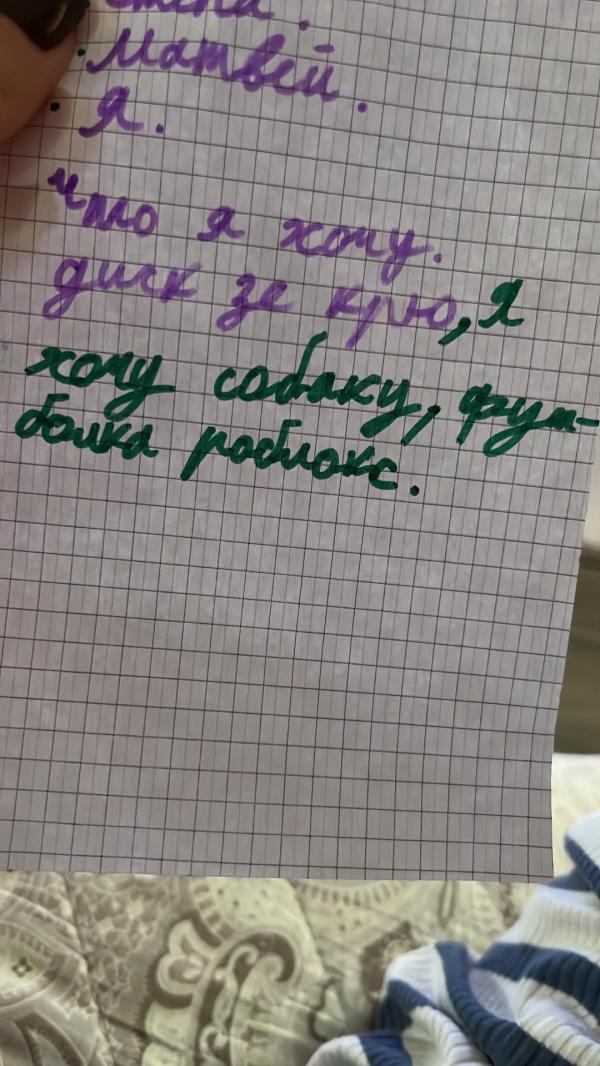 Матвей.
Я.
что я хочу.
диск зе крю, я
хочу собаку, фут-
болка роблокс.